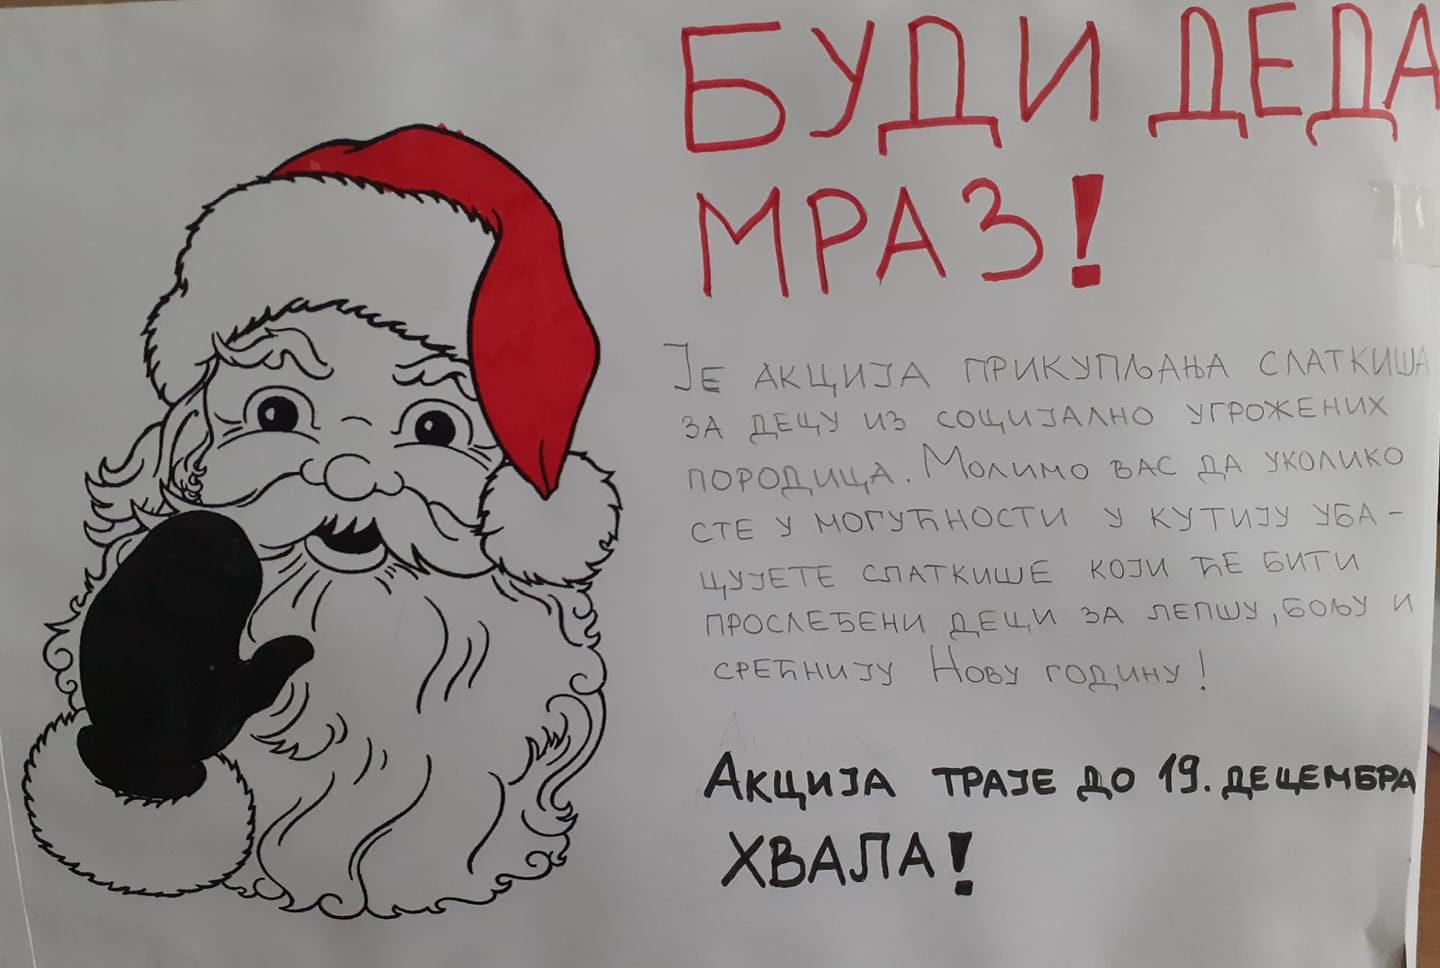 БУДИ ДЕДА
МРАЗ!
ЈЕ АКЦИЈА ПРИКУПЉАЊА СЛАТКИША
ЗА ДЕЦУ ИЗ СОЦИЈАЛНО УГРОЖЕНИХ
ПОРОДИЦА. МОЛИМО ВАС ДА УКОЛИКО
СТЕ У МОГУЋНОСТИ У КУТИЈУ УБА-
ЦУЈЕТЕ СЛАТКИШЕ КОЈИ ЋЕ БИТИ
ПРОСЛЕЂЕНИ ДЕЦИ ЗА ЛЕПШУ, БОЉУ И
СРЕЋНИЈУ НОВУ ГОДИНУ!
АКЦИЈА ТРАЈЕ ДО 19. ДЕЦЕМБРА
ХВАЛА!